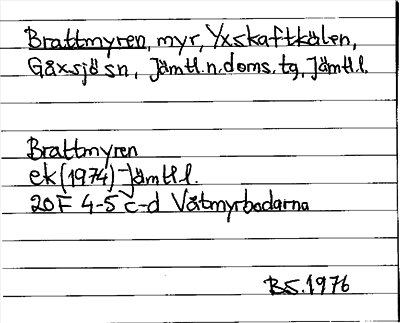 Brattmyren, myr, Yxskaftkälen,
Gåxsjö sn, Jämtl.n.doms.tg, Jämtl.l.
Brattmyren
ek (1974) Jämtl l.
20F 4-5 c-d Våtmyrbodarna
B.S. 1976